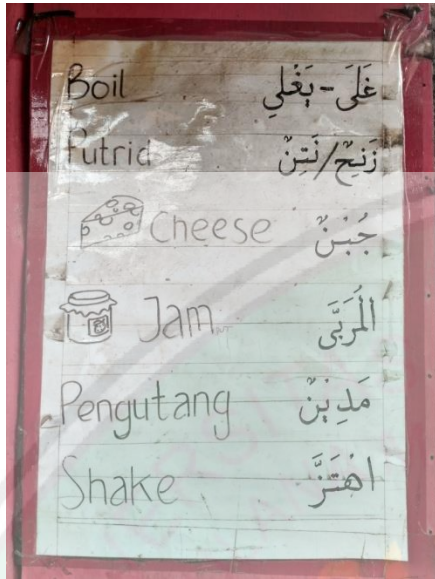 Boil غَلَى - يَغْلِي
Putrid زَنِخٌ/نَتِنٌ
Cheese جُبْنٌ
Jam الْمُرَبَّى
Pengutang مَدِيْنٌ
Shake اهْتَزَّ